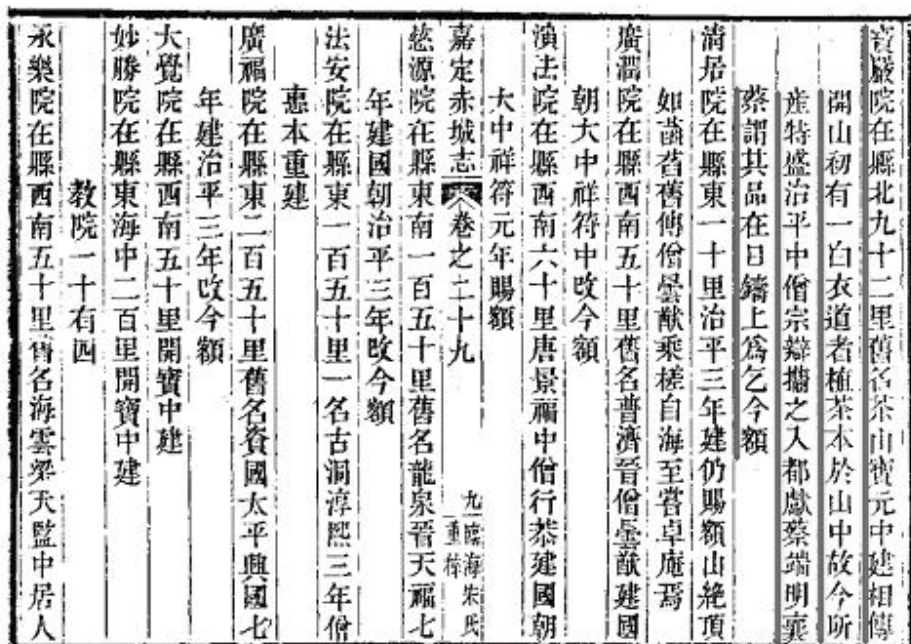 寶嚴院在縣北九十二里舊名茶山寶元中建相傳
開山初有一白衣道者植茶本於山中故今所
産特盛治平中僧宗辯攜之入都獻蔡端明襄
蔡謂其品在日鑄上爲乞今額
清居院在縣東一十里治平三年建仍賜額山絶頂
如菡萏舊傳僧曇猷乘槎自海至嘗卓庵焉
廣潤院在縣西南五十里舊名普濟晉僧曇猷建國
朝大中祥符中改今額
演法院在縣西南六十里唐景福中僧行恭建國朝
大中祥符元年賜額
嘉定赤城志 卷之二十九 九 臨海朱氏
重梓
慈源院在縣東南一百五十里舊名龍泉晉天福七
年建國朝治平三年改今額
法安院在縣東一百五十里一名古洞淳熙三年僧
惠本重建
廣福院在縣東二百五十里舊名資國太平興國七
年建治平三年改今額
大覺院在縣西南五十里開寶中建
妙勝院在縣東海中二百里開寶中建
教院一十有四
永樂院在縣西南五十里舊名海雲梁天監中居人